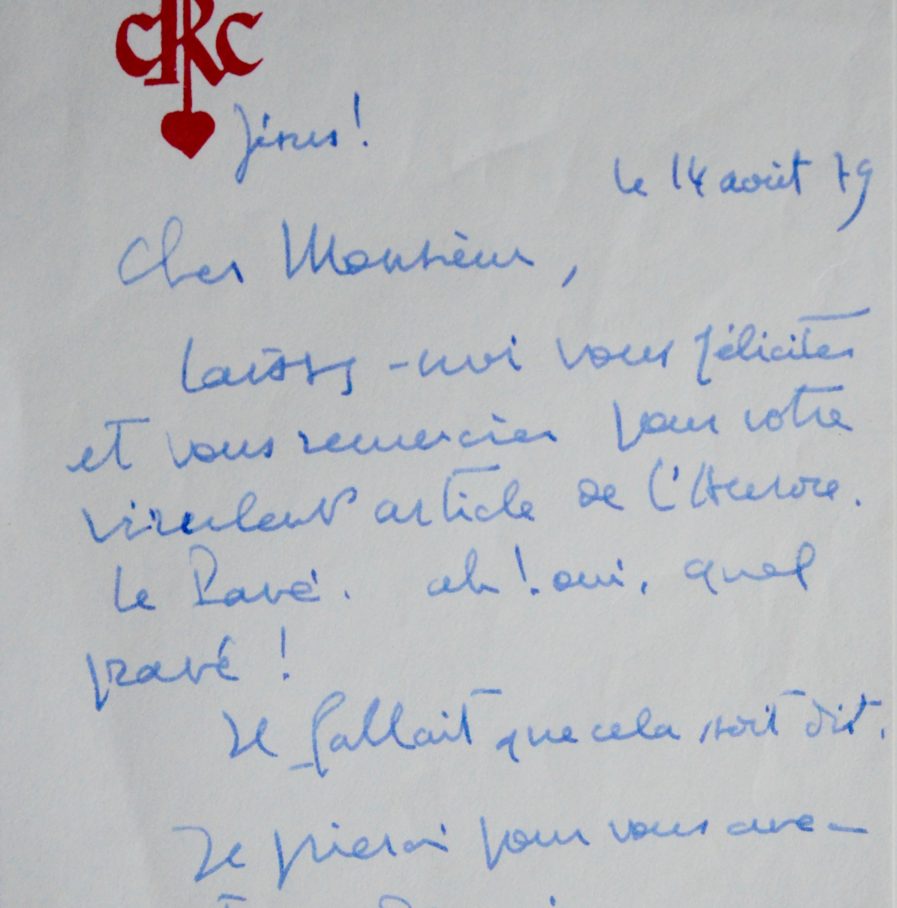 CRC
Jésus!
le 14 août 79
Cher Monsieur,
Laissez-moi vous féliciter
et vous remercier pour votre
virulent article de l'Aurore.
Le Pavé. ah! oui, quel
pavé!
Il fallait que cela soit dit.
Je prierai pour vous avec